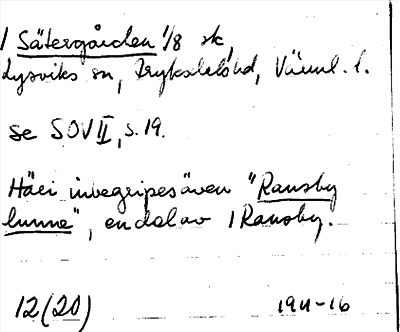 1 Sätergården 1/8 sk,
Lysviks sn, Fryksdals hd, Värml. l.
se SOV II, s. 19.
Häri inbegripes även "Ransby
lunne", en del av 1 Ransby.
12(20) 1911-16